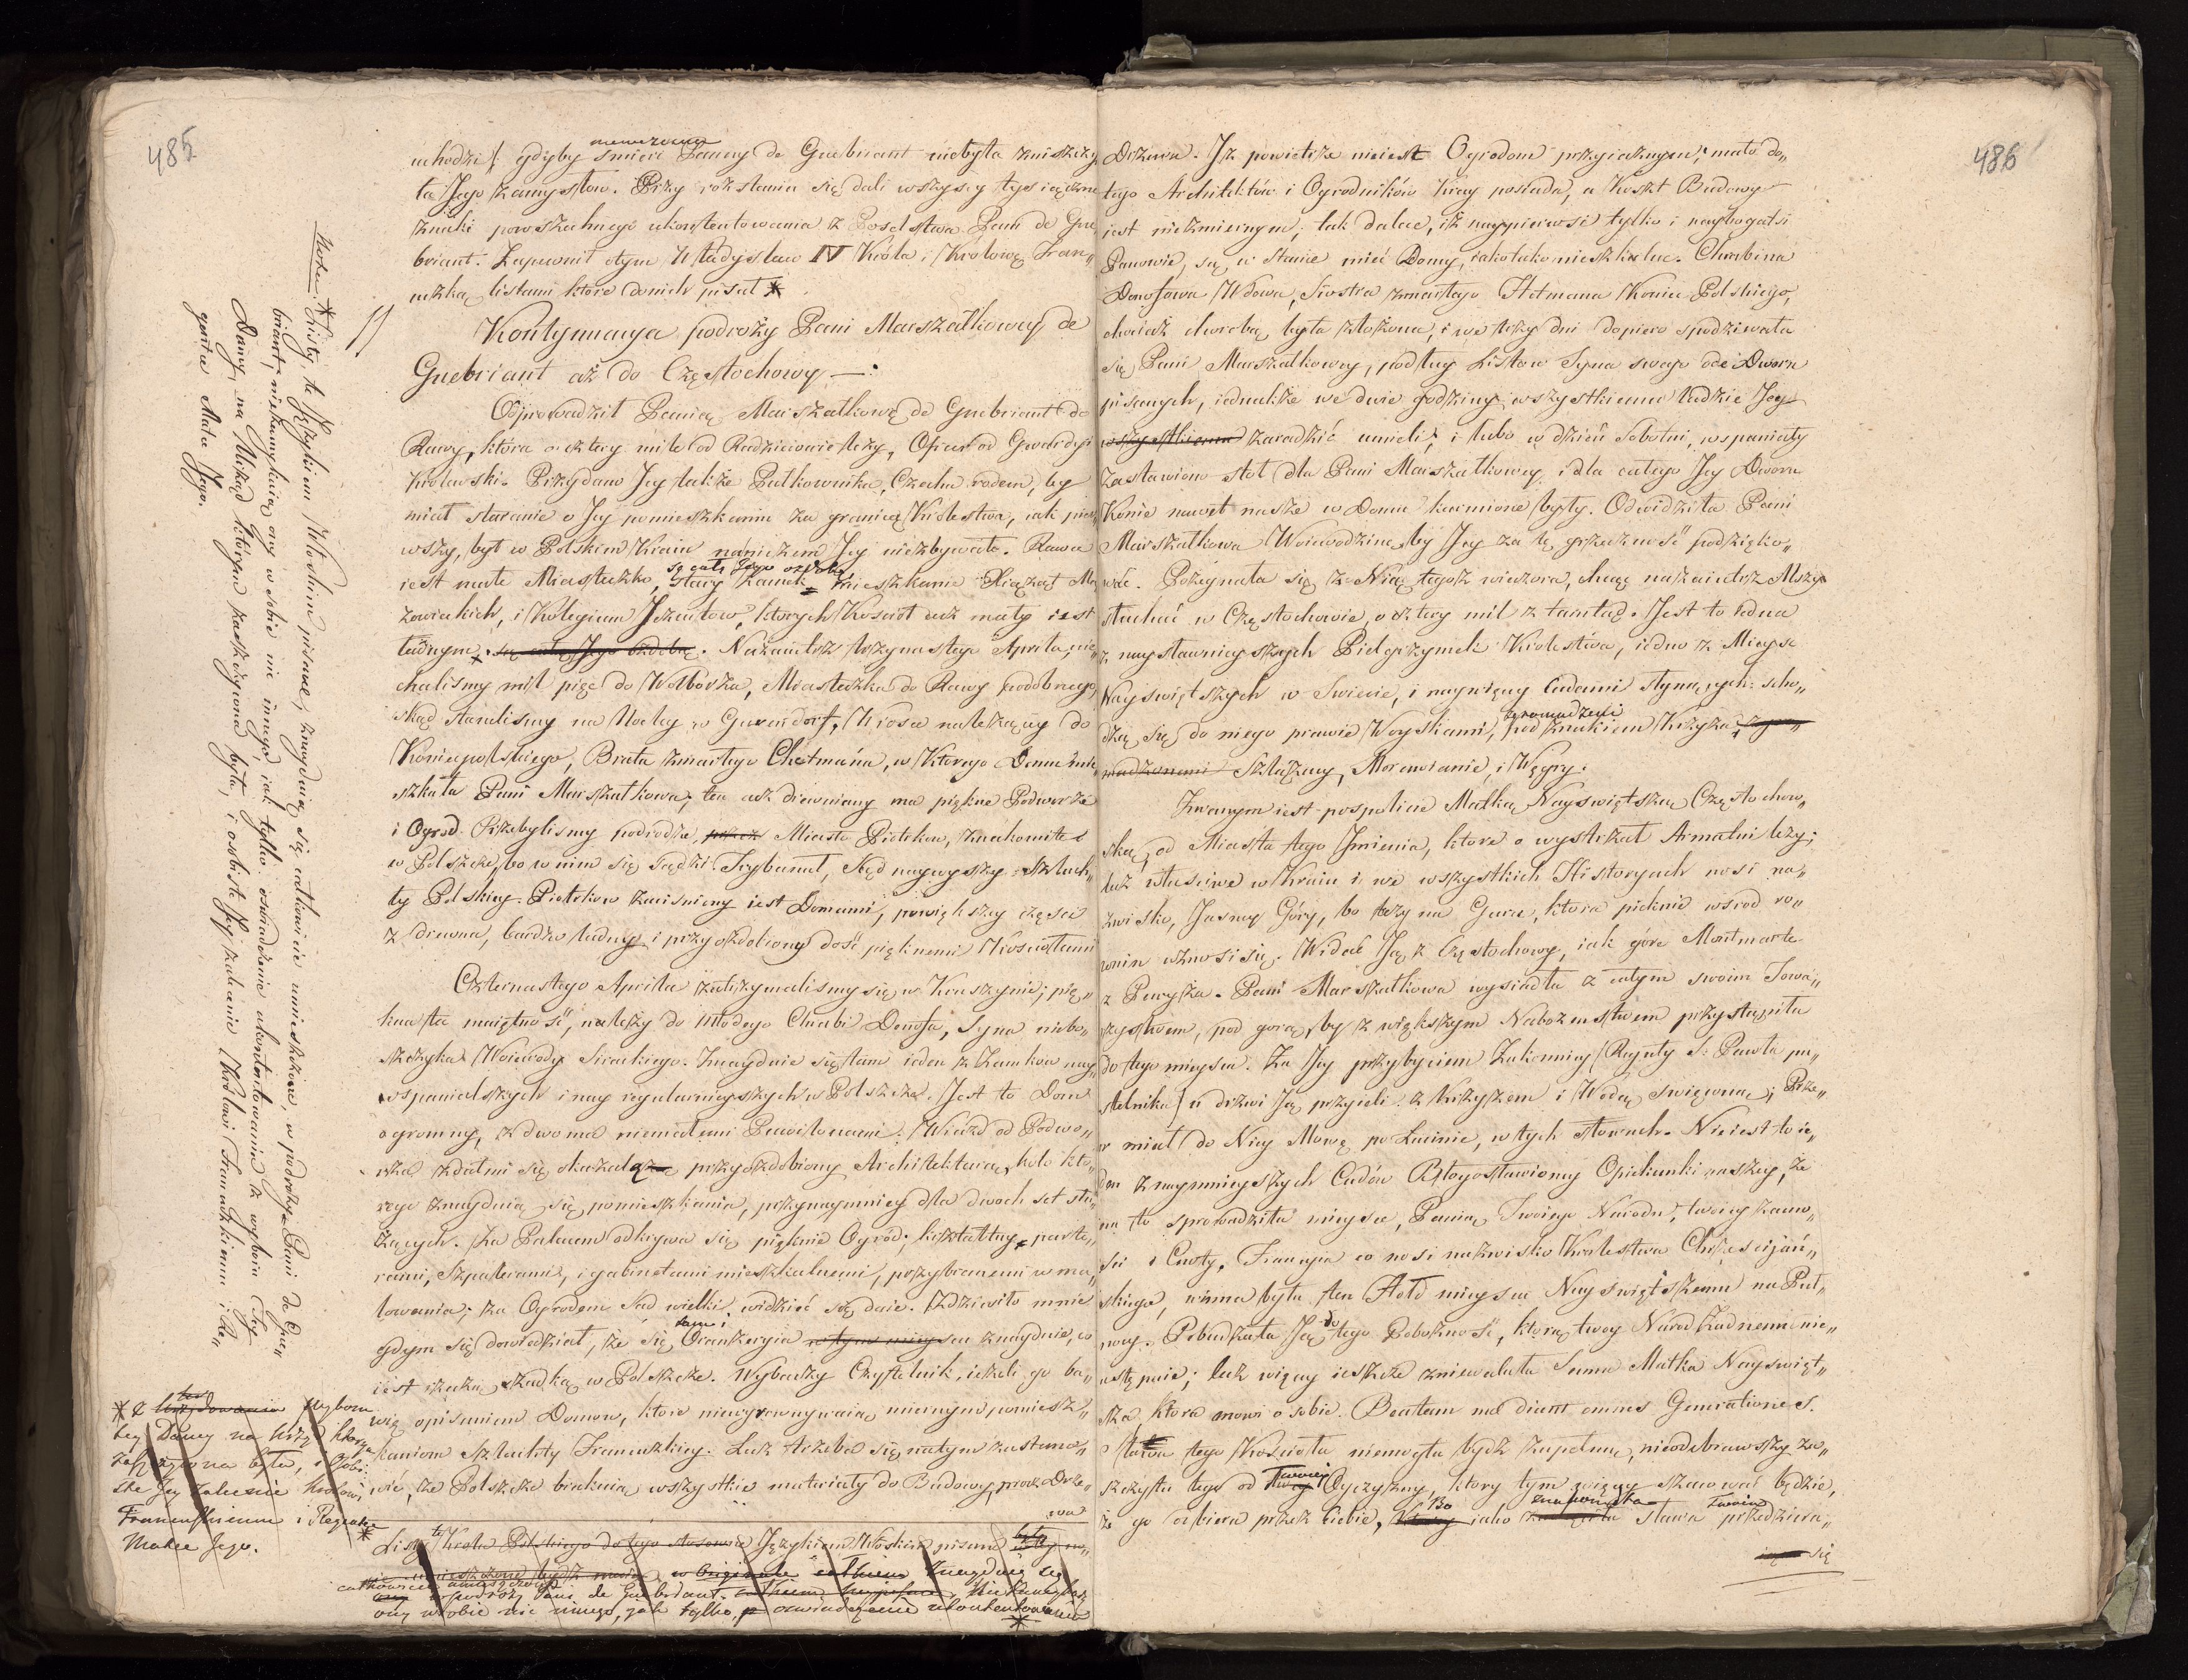 485
uchodził gdyby śmierć Panny de Guebriant niebyła zniszczy„
ła Jego zamysłow. Przy rozstaniu się dali wszyscy tysiączne
znaki powszechnego ukontentowania z Poselstwa Pani de Gue„
briant. Zapewnił otym Władysław IV Króla i Królowę Fran„
cuzką listami które donich pisał *
Kontynuacya podroży Pani Marszałkowey de
Guebriant aż do Częstochowy —.
Odprowadził Panią Marszałkowę de Guebriant do
Rawy, która o cztery mile od Radziciowic leży, Oficer od Gwardyi
Krolewski. Przydano Jey także Pułkownika, Czecha rodem, by
miał staranie o Jey pomieszkaniu za granicą Krolestwa, iak pier„
wszy, był w Polskim Kraiu naniczem Jey niezbywało. Rawa
iest małe Miasteczko, są całą Jego ozdobą stary Zamek mieszkanie Xiążąt Ma„
zowieckich, i Kolegium Jezuitow, ktorych Kościoł acz mały iest
ładnym. są całą Jego ozdobą. Nazaiutrz trzynastego Aprila, uie„
chaliśmy mil pięć do Wolborza, Miasteczka do Rawy podobnego,
skąd stanelismy na Nocleg w Guzendorf, Wiosce należącey do
Koniecpolskiego, Brata zmarłego Chetmána, w którego Domu mie„
szkała Pani Marszałkowa; ten acz drewniany ma piękne Podworze
i Ogrod. Przebylismy podrodze, przez Miasto Piotrkow, znakomite
w Polszcze, bo w nim się sądzi Trybunał, Sąd naywyszy Szlach„
ty Polskiey. Piotrkow zacisniony iest Domami, powiększey części
z drewna, bardzo ludny, i przyozdobiony dość pięknemi Kosciołami
Czternastego Aprila zatrzymalismy się w Kruszynie; pię„
kna ta maiętność, należy do młodego Chrabi Denofa, Syna niebo„
szczyka Woiewody Sirackiego. Znayduie się tam ieden z Zamkow nay„
wspanialszych i nay regularnieyszych w Polszcze. Jest to Dom
ogromny, z dwoma niemałemi Pawilonami. Wiazd od Podwo„
rza zdał mi się okazałą przyozdobiony Architekturą, koło któ„
rego znayduią się pomieszkania, przynaymniey dla dwoch set sto„
iących. Za Pałacem odkrywa się pięknie Ogród; kształtny, parte„
rami, Szpalerami, i gabinetami mieszkalnemi, przybranemi w ma„
lowania; za Ogrodem Sad wielki widzieć się daie. Zdziwiło mnie
gdym się dowiedział, że się tam i Oranżeryia w tym mieyscu znayduie, co
iest rzeczą rzadką w Polszcze. Wybaczy Czytelnik, ieżeli go ba„
wię opisaniem Domow, które niewyrownywaią miernym pomiesz„
kaniom Szlachty Francuzkiey. Lecz trzeba się natym zastano„
wić, że Polszcze brakuią wszystkie materiały do Budowy, procz Drze„
wa
Listy te Króla Polskiego do tego stosowne Językiem Włoskim pisane
całkowicie umieszczone w podroży Pani de Guebriant. Nie zamykaią
ony w sobie nic innego, jak tylko oswiadczenie ukontentowania
*
* z wyboru
tey Damy na Urząd którym
zaszczycona była, i Osobi„
ste Jey zalecenie Krolowi
Francuskiemu i Regentce
Matce Jego. *
Nota. * Listy te Językiem Włoskim pisane, znayduią się całkowicie umieszczone, w podroży Pani de Gue„
briant, niezamykaią ony w sobie nic innego, iak tylko oswiadczenie ukontentowania z wyboru Tey
Damy, na Urząd którym zaszczycona była, i osobiste Jey zalecenie Królowi Francuzkiemu i Re„
gentce Matce Jego.
486
Drzewa. Iż powietrze nieiest Ogrodom przyiaznym; mało do„
tego Architektów i Ogrodników kray posiada, a Koszt Budowy
iest niezmiernym; tak dalece, iż naypierwsi tylko i naybogatsi
Panowie, są w stanie mieć Domy, iakotako mieszkalne. Chrabina
Donofowa Wdowa, Siostra zmarłego Hetmana Koniecpolskiego,
chociaż chorobą była złożona, i we trzy dni dopiero spodziewała
się Pani Marszałkowey, podług Listow Syna swego ode Dworu
pisanych, iednakże we dwie godziny, wszystkiemu ludzie Jey
wszystkiemu zaradzić umieli; i lubo w dzień Sobotni, wspaniały
zastawiono stoł dla Pani Marszałkowey i dla całego Jey Dworu
Konie nawet nasze w Domu karmione były. Odwidziła Pani
Marszałkowa Woiewodzinę, by Jey za tę grzeczność podzięko„
wać. Pożegnała się z Nią tegoż wieczora, chcąc nazaiutrz Mszy
słuchać w Częstochowie, o cztery mil z tamtąd. Jest to iedna
z naysławnieyszych Pielgrzymek Krolestwa, iedno z Mieysc
Nayswiętszych w Swiecie, i naywięcey Cudami słynących: scho„
dzą się do niego prawie Woyskami, zgromadzeni pod znakiem Krzyża,
madzonemi Szlązacy, Morawianie, i Węgry.
Zwanym iest pospolicie Matką Nayswiętszą Częstochow„
ską, od Miasta tego Imienia, które o wystrzał Armatni leży;
lecz własciwe w Kraiu i we wszystkich Historyach nosi na„
zwisko, Jasney Góry, bo leży na Gurze, która pieknie wsrod ro„
wnin wznosi się. Widać Ją z Częstochowy, iak górę Montmarte
z Paryża. Pani Marszałkowa wysiadła z całym swoim Towa„
rzystwem, pod gorą, by z większym Nabożenstwem przystąpiła
do tego mieysca. Za Jey przybyciem Zakonnicy (Reguły S: Pawła pu„
stelnika) u drzwi Ją przyieli z Krzyżem i Wodą swięconą; Prze„
or miał do Niey Mowę po Łacinie, w tych słowach. Nieiest to ie„
den z naymnieyszych Cudów Błogosławioney Opiekunki naszey, że
na to sprowadziła mieysce, Panią Twoiego Narodu, twoiey zacno„
ści i Cnoty. Francyia co nosi nazwisko Krolestwa Chrzescijań„
skiego, winna była ten Hołd mieyscu Nayswiętszemu na Puł„
nocy. Pobudzała Ją do tego Pobożność, którą twoy Naród żadnemu nie„
ustępuie; lecz więcey ieszcze zniewalała Sama Matka Nayswięt„
sza, ktora mowi o sobie. Beatam me dicent omnes Generationes.
Sława tego Kościoła niemogła bydź zupełną, nieodebrawszy za„
szczytu tego od Twoiey Oyczyzny, ktory tym więcey szacować będzie,
że go odbiera przez Ciebie, Bo iako sława Twoia przedziera„
się